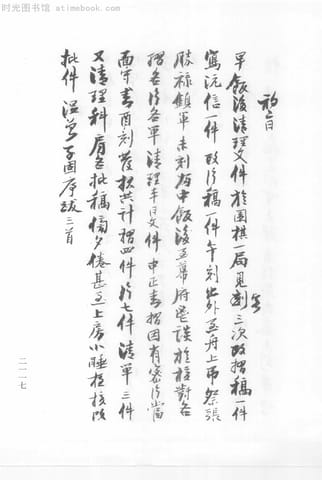 时光图书 atimebook.com
初六日
早飯後清理文件於圍棋一局見客三次改摺稿一件
寫沅信一件改片稿一件午刻出外至舟上弔祭張
勝祿鎮軍未刻歸中飯後至幕府鬯談於核對各
摺各片各單清理本日文件申正書摺因有密片當
面守書酉刻發報共計摺四件片七件清單三件
又清理科房各批稿傍夕倦甚至上房小睡夜核改
批件溫曾子固序跋三首
二一一七